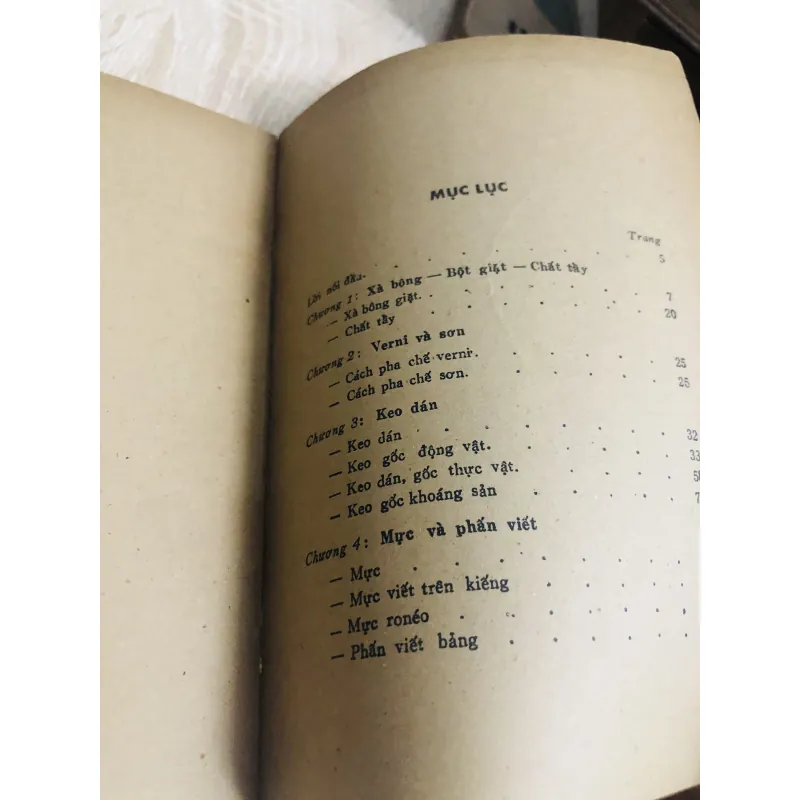 MỤC LỤC
Trang
Lời nói đầu. . . . . . . . . 5
Chương 1: Xà bông — Bột giặt — Chất tẩy
— Xà bông giặt. . . . . . . . 7
— Chất tẩy . . . . . . . . 20
Chương 2: Verni và sơn
— Cách pha chế verni. . . . . . 25
— Cách pha chế sơn. . . . . . 25
Chương 3: Keo dán
— Keo dán . . . . . . . . 32
— Keo gốc động vật. . . . . . 33
— Keo dán, gốc thực vật. . . . . .
— Keo gốc khoáng sản . . . . .
Chương 4: Mực và phấn viết
— Mực . . . . . . . .
— Mực viết trên kiếng . . . . .
— Mực ronéo . . . . . . .
— Phấn viết bảng . . . . . .